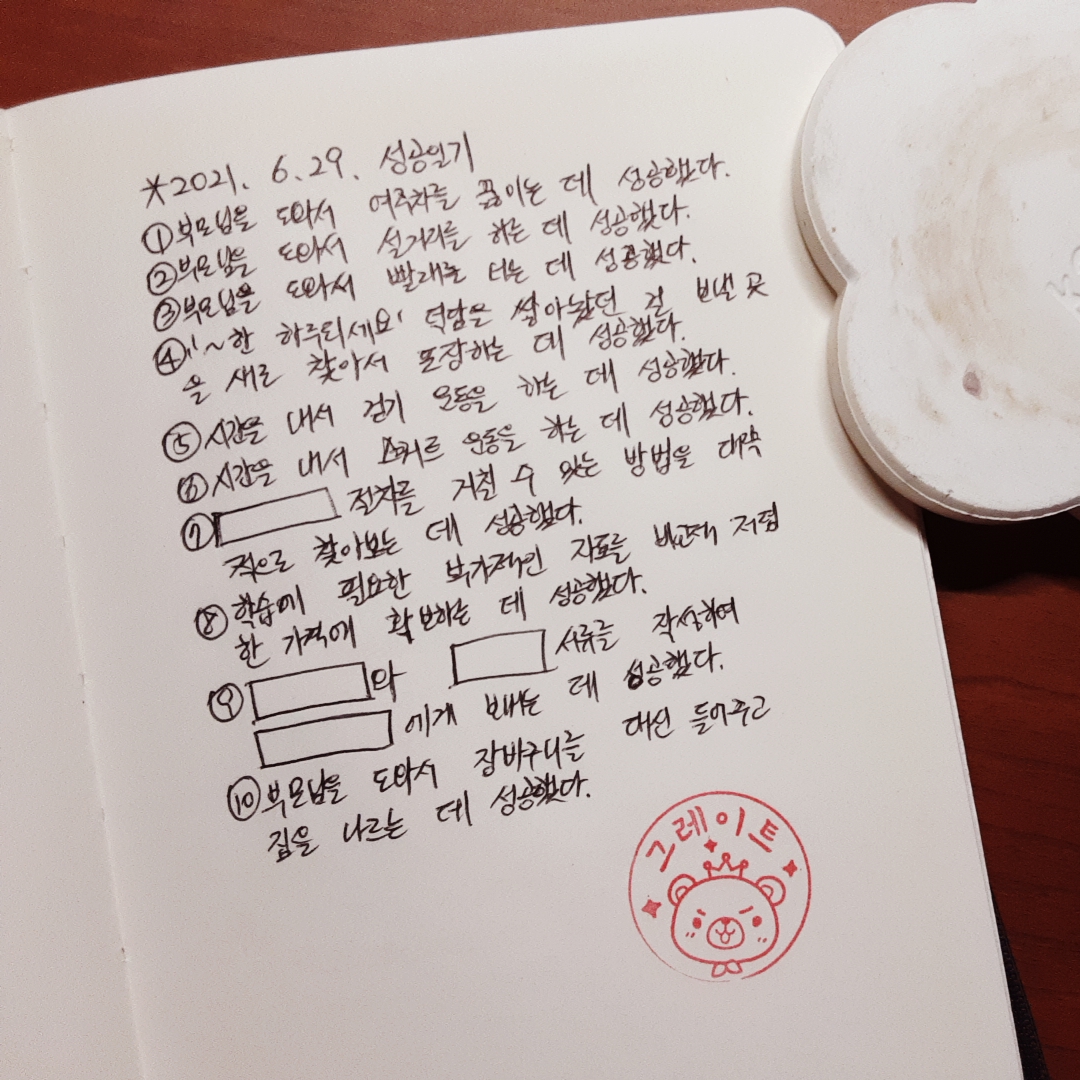 *2021. 6.29. 성공일기
① 부모님을 도와서 여주차를 끓이는 데 성공했다.
② 부모님을 도와서 설거지를 하는 데 성공했다.
③ 부모님을 도와서 빨래를 너는 데 성공했다.
④ '~한 하루되세요' 덕담을 쌓아놨던 걸 보낼 곳
을 새로 찾아서 포장하는 데 성공했다.
⑤ 시간을 내서 걷기 운동을 하는 데 성공했다.
⑥ 시간을 내서 스쿼트 운동을 하는 데 성공했다.
⑦ 절차를 거칠 수 있는 방법을 대략
적으로 찾아보는 데 성공했다.
⑧ 학습에 필요한 부가적인 자료를 비교적 저렴
한 가격에 확보하는 데 성공했다.
⑨ 와 서류를 작성하여
에게 보내는 데 성공했다.
⑩ 부모님을 도와서 장바구니를 대신 들어주고
짐을 나르는 데 성공했다.
그레이트